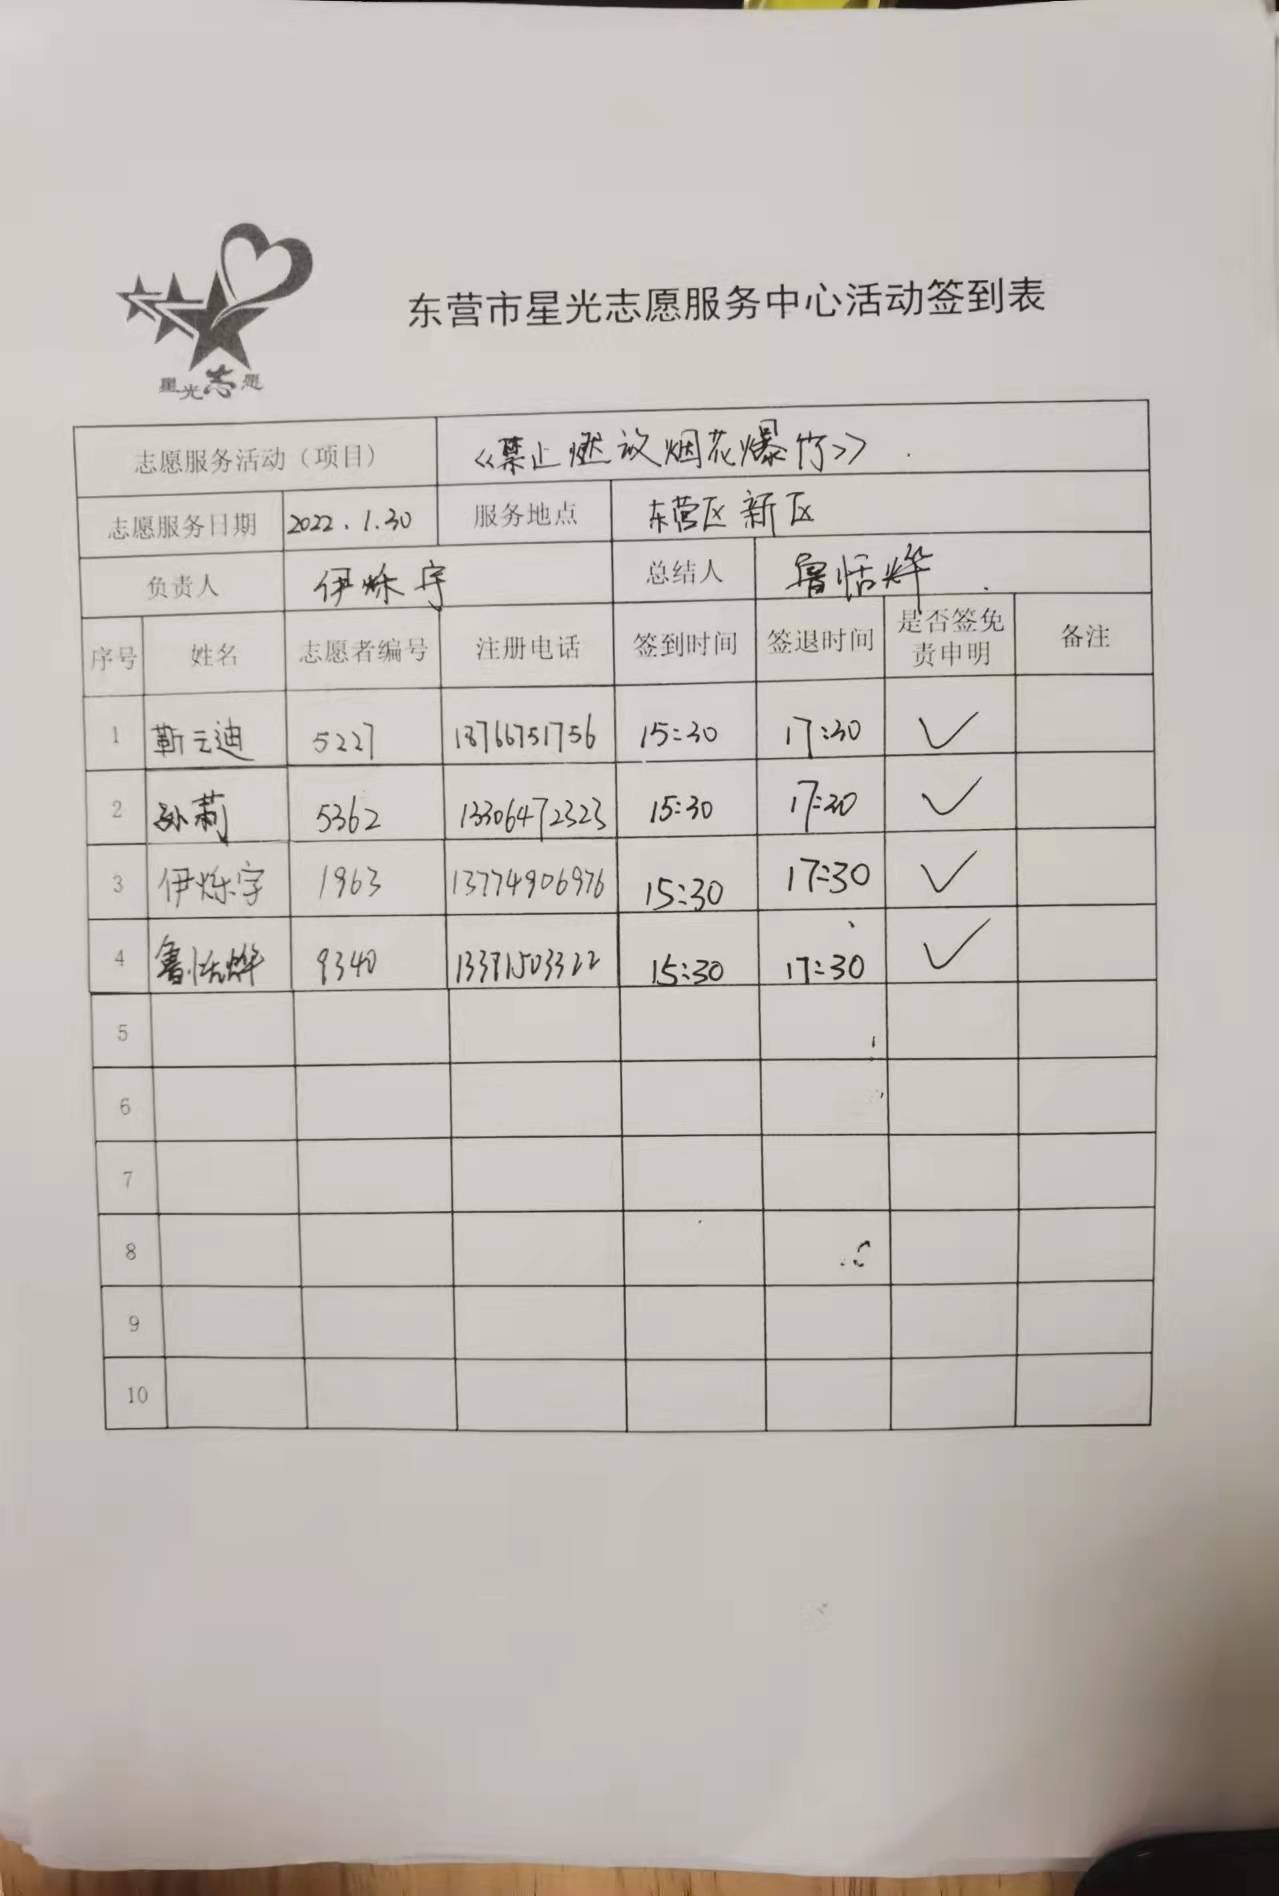 星光志愿
东营市星光志愿服务中心活动签到表
志愿服务活动（项目） 《禁止燃放烟花爆竹》
志愿服务日期 2022.1.30 服务地点 东营区新区
负责人 伊烁宇 总结人 鲁恬烨
序号 姓名 志愿者编号 注册电话 签到时间 签退时间 是否签免责申明 备注
1 靳云迪 5227 18766751756 15:30 17:30 ✓
2 孙莉 5362 13306472323 15:30 17:30 ✓
3 伊烁宇 1963 13774906976 15:30 17:30 ✓
4 鲁恬烨 9340 15:30 17:30 ✓
5
6
7
8
9
10